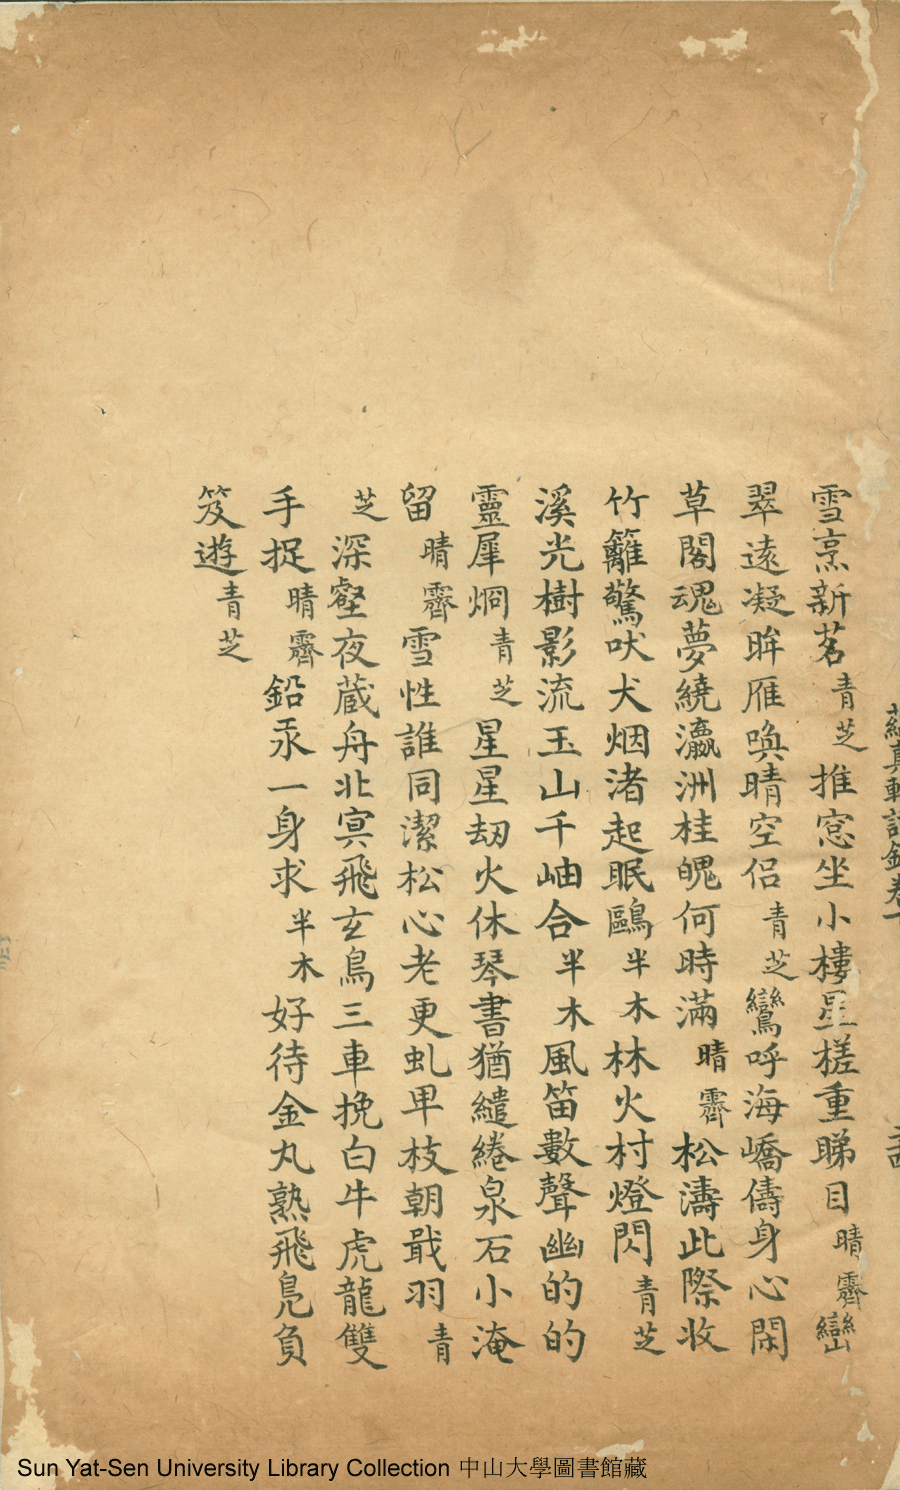 雪烹新茗青芝推窓坐小樓星槎重睇目晴霽巒
翠遠凝眸雁喚晴空侶青芝鸞呼海嶠儔身心閑
草閣魂夢繞瀛洲桂魄何時滿晴霽松濤此際收
竹籬驚吠犬烟渚起眠鷗半木林火村燈閃青芝
溪光樹影流玉山千岫合半木風笛數聲幽的的
靈犀烱青芝星星劫火休琴書猶繾綣泉石小淹
留晴霽雪性誰同潔松心老更虬卑枝朝戢羽青
芝深壑夜蔵舟北冥飛玄鳥三車挽白牛虎龍雙
手捉晴霽鉛汞一身求半木好待金丸熟飛鳧負
笈遊青芝
Sun Yat-Sen University Library Collection 中山大學圖書館藏